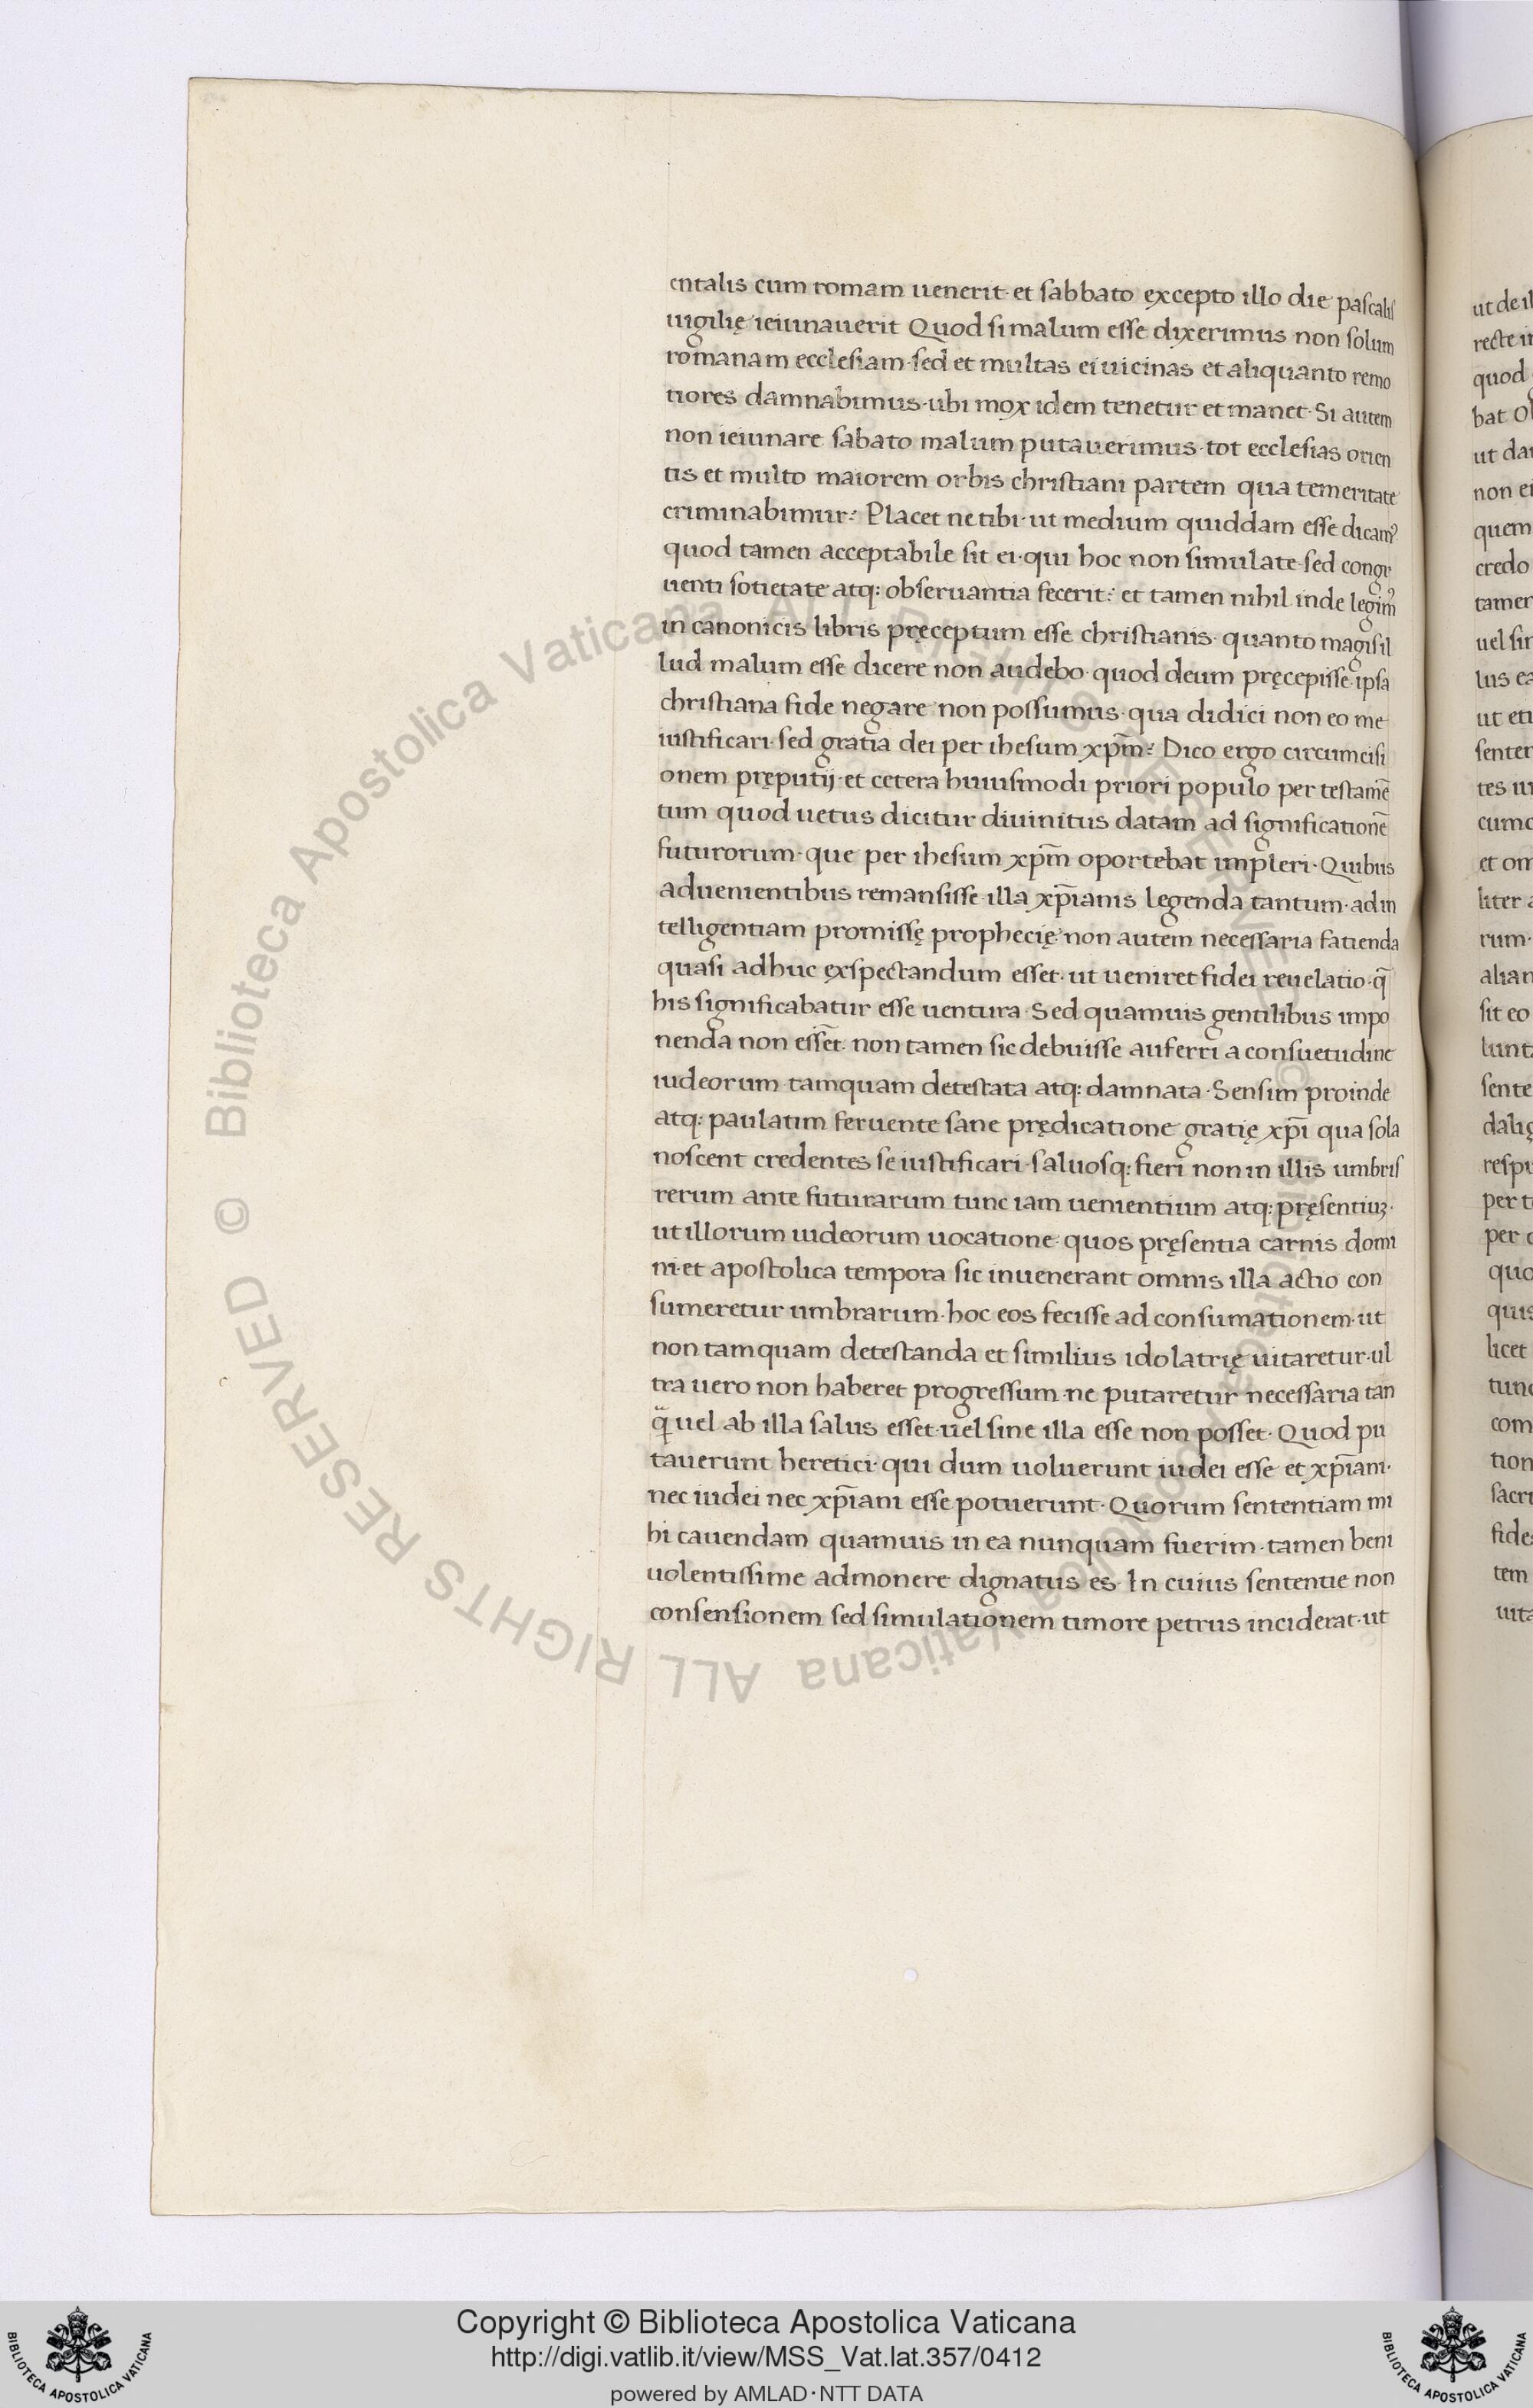 entalis cum romam uenerit· et sabbato excepto illo die pascalis
uigilię ieiunauerit Quod si malum esse dixerimus non solum
romanam ecclesiam· sed et multas ei uicinas et aliquanto remo
tiores damnabimus· ubi mox idem tenetur et manet· Si autem
non ieiunare sabato malum putauerimus· tot ecclesias orien
tis et multo maiorem orbis christiani partem qua temeritate
criminabimur? Placet ne tibi· ut medium quiddam esse dicamꝰ
quod tamen acceptabile sit ei· qui hoc non simulate sed congr
uenti sotietate atq: obseruantia fecerit? et tamen nihil inde legimꝰ
in canonicis libris pręceptum esse christianis· quanto magis il
lud malum esse dicere non audebo· quod deum pręcepisse ipsa
christiana fide negare non possumus· qua didici non eo me
iustificari· sed gratia dei per ihesum xp̄m? Dico ergo circumcisi
onem pręputij· et cetera huiusmodi priori populo per testamē
tum quod uetus dicitur diuinitus datam ad significationē
futurorum· que per ihesum xp̄m oportebat impleri· Quibus
aduenientibus remansisse illa xp̄ianis legenda tantum· ad in
telligentiam promissę prophecię· non autem necessaria fatienda
quasi adhuc exspectandum esset· ut ueniret fidei reuelatio· q̄
his significabatur esse uentura· Sed quamuis gentilibus impo
nenda non essēt· non tamen sic debuisse auferri a consuetudine
iudeorum tamquam detestata atq: damnata· Sensim proinde
atq: paulatim feruente sane prędicatione gratię xp̄i qua sola
noscent credentes se iustificari· saluosq: fieri non in illis umbris
rerum ante futurarum tunc iam uenientium atq: pręsentiuꝫ·
ut illorum iudeorum uocatione· quos pręsentia carnis domi
ni· et apostolica tempora sic inuenerant omnis illa actio con
sumeretur umbrarum· hoc eos fecisse ad consumationem· ut
non tamquam detestanda et similius idolatrię uitaretur· ul
tra uero non haberet progressum· ne putaretur necessaria tan
qᷓ uel ab illa salus esset· uel sine illa esse non posset· Quod pu
tauerunt heretici· qui dum uoluerunt iudei esse et xp̄iani·
nec iudei nec xp̄iani esse potuerunt· Quorum sententiam mi
hi cauendam quamuis in ea nunquam fuerim· tamen beni
uolentissime admonere dignatus es· In cuius sententie non
consensionem sed simulationem timore petrus inciderat· ut
ut de il
recte i
quod
bat
ut da
non ei
quem
credo
tamen
uel sin
lus ea
ut eti
senten
tes iu
cumc
et om
liter a
rum·
alian
sit eo
lunt
sente
respu
per t
per
quo
quis
licet
tunc
com
tion
sacri
fide
tem
uita
© Biblioteca Apostolica Vaticana ALL RIGHTS RESERVED © Biblioteca Apostolica Vaticana ALL RIGHTS RESERVED
BIBLIOTECA APOSTOLICA VATICANA
Copyright © Biblioteca Apostolica Vaticana
http://digi.vatlib.it/view/MSS_Vat.lat.357/0412
powered by AMLAD·NTT DATA
BIBLIOTECA APOSTOLICA VATICANA